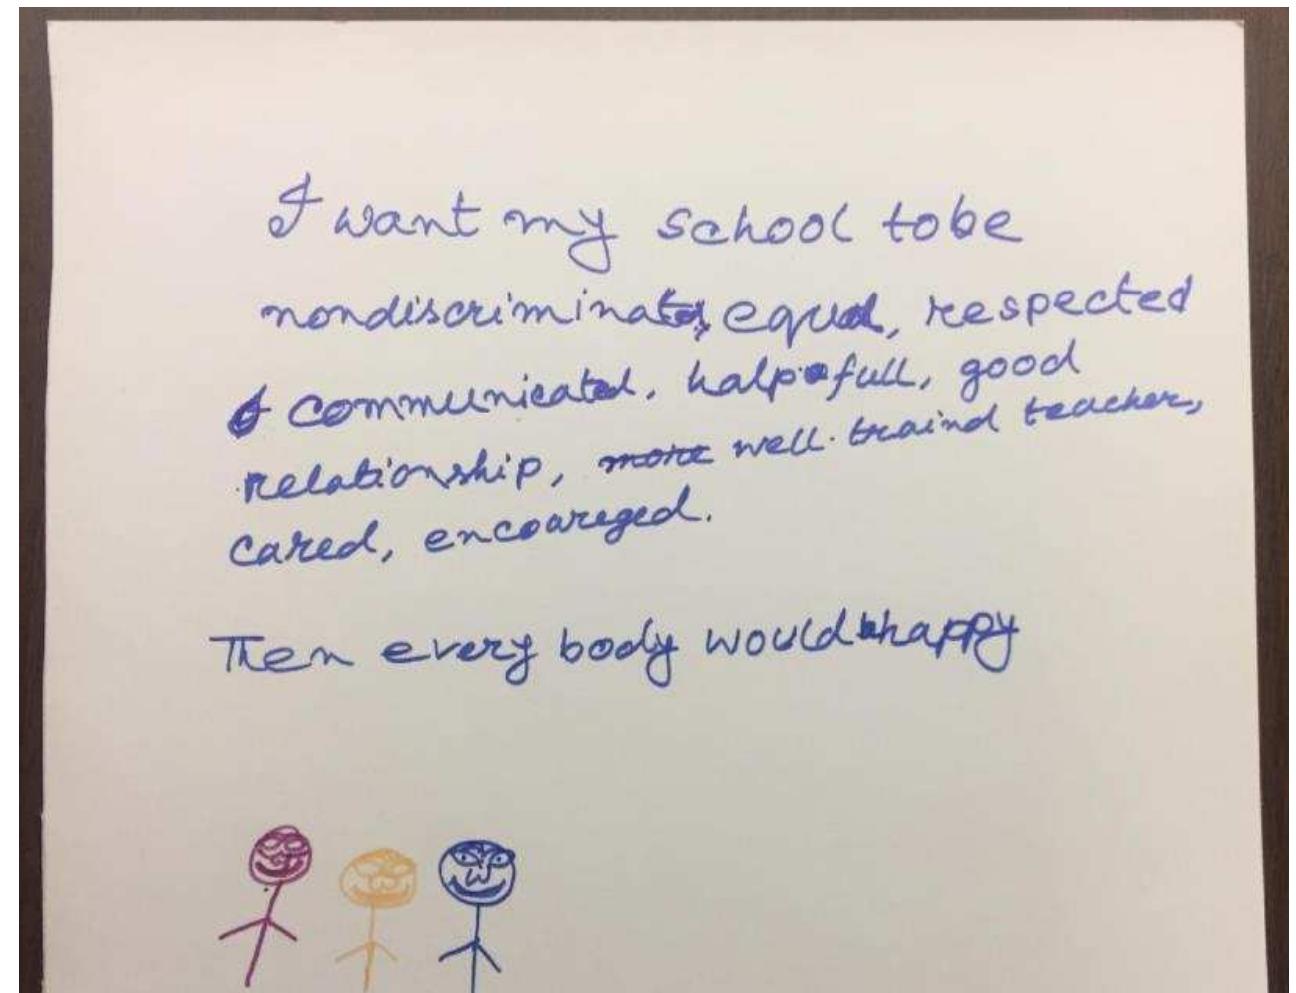 I want my school tobe
nondiscriminated, equal, respected
communicated, halpfull, good
relationship, more well traind teacher,
cared, encoareged.
Then every body would happy